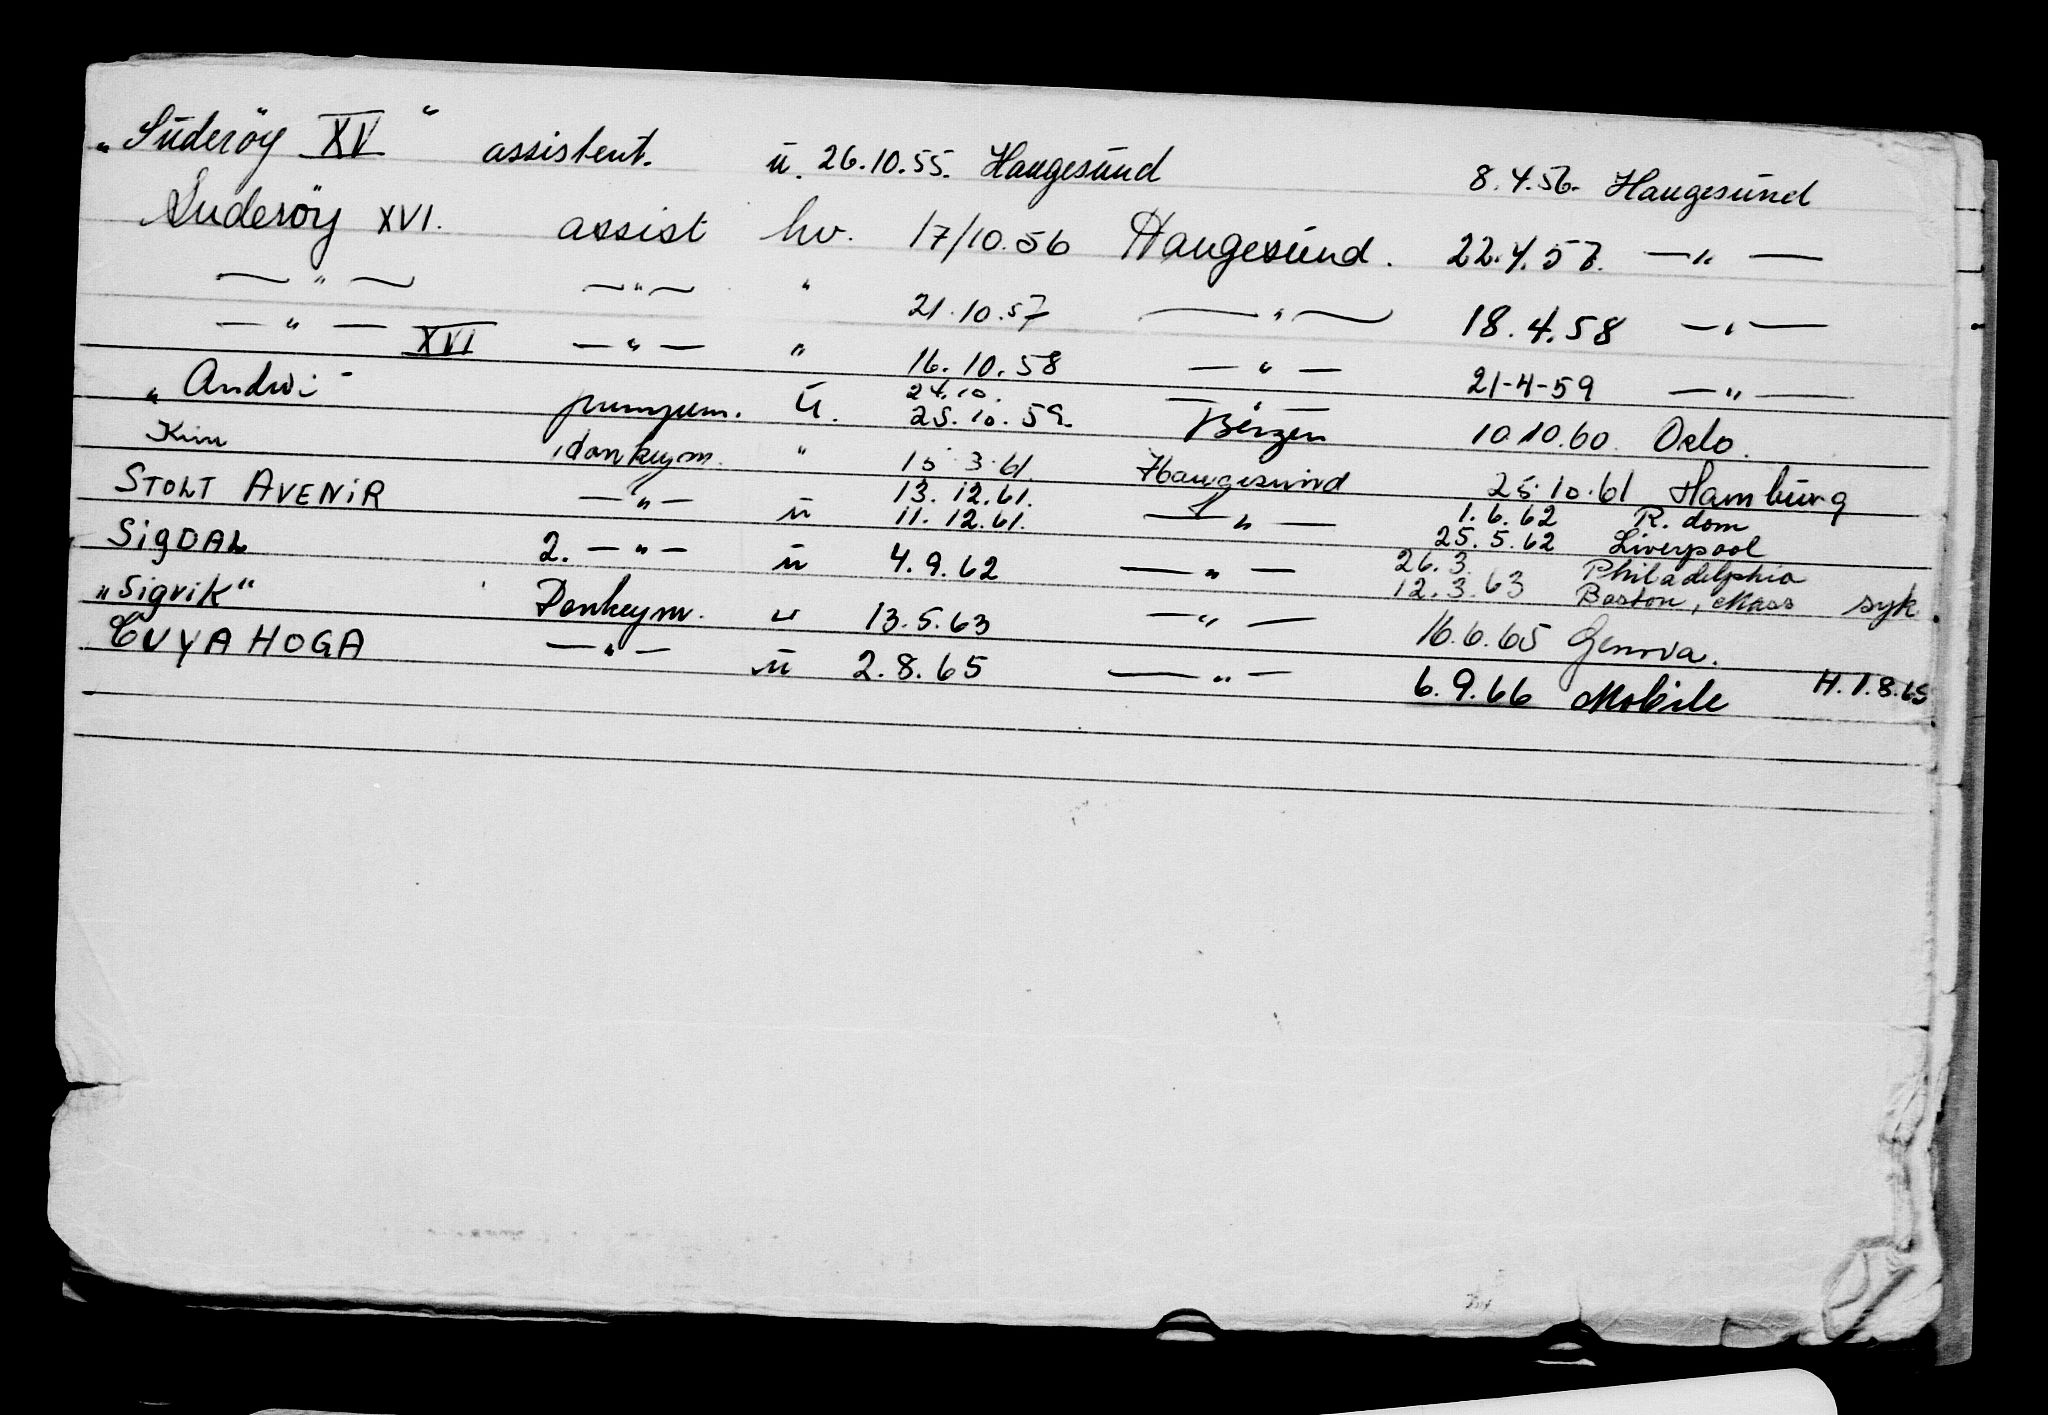 "Süderöy XV" assistent. ü. 26.10.55. Haugesünd 8.4.56. Haugesünd
Suderöy XVI. assist hv. 17/10.56 Haugesünd. 22.4.57. — " —
— " — — " — " 21.10.57 — " — 18.4.58 — " —
— " — XVI — " — " 16.10.58 — " — 21-4-59 — " —
24.10.
" Andwi - pumpem. ü. 25.10.59. Bergen 10.10.60. Oslo.
Kim donkeym. " 15.3.61. Haugesund 25.10.61 Hamburg
13.12.61. 1.6.62 R.dom
STOLT AVENiR — " — ü 11.12.61. — " — 25.5.62 Liverpool
26.3. Philadelphia
SigDAL 2. — " — ü 4.9.62 — " — 12.3.63 Boston, Mass syk.
"Sigvik" Donkeym. u 13.5.63 — " — 16.6.65 Genova.
CUYAHOGA — " — ü 2.8.65 — " — 6.9.66 Mobile H.1.8.65